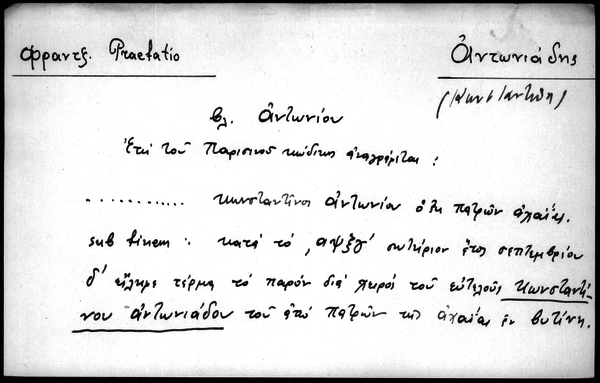 Φραντζ. Praefatio
Ἀντωνιάδης
(Κωνσταντῖνος)
βλ. Ἀντωνίου
Ἐπὶ τοῦ Παρισινοῦ κώδικος ἀναγράφεται :
............ Κωνσταντῖνος Ἀντωνίου ὁ ἐκ πατρῶν ἀχαΐας.
sub finem : κατὰ τὸ ,αψξγ' σωτήριον ἔτος σεπτεμβρίου
δ' εἴληφε τέρμα τὸ παρόν διὰ χειρός τοῦ εὐτελοῦς Κωνσταντί-
νου ἀντωνιάδου τοῦ ἀπό πατρῶν τῆς ἀχαΐας ἐν βυτίνῃ.